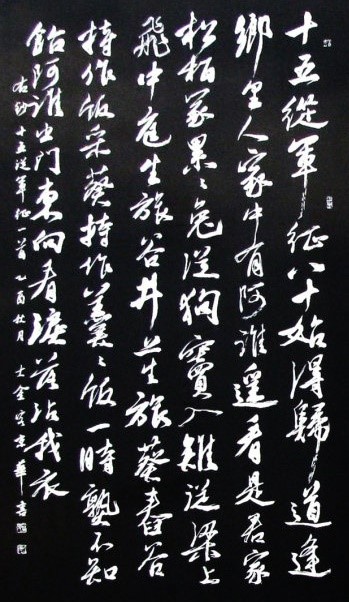 十五從軍征八十始得歸道逢
鄉里人家中有阿誰遙看是君家
松柏冢累〻兔從狗竇入雉從梁上
飛中庭生旅谷井上生旅葵舂谷
持作飯采葵持作羹〻飯一時熟不知
飴阿誰出門東向看淚落沾我衣
古詩十五從軍征一首乙酉秋月士金京華書